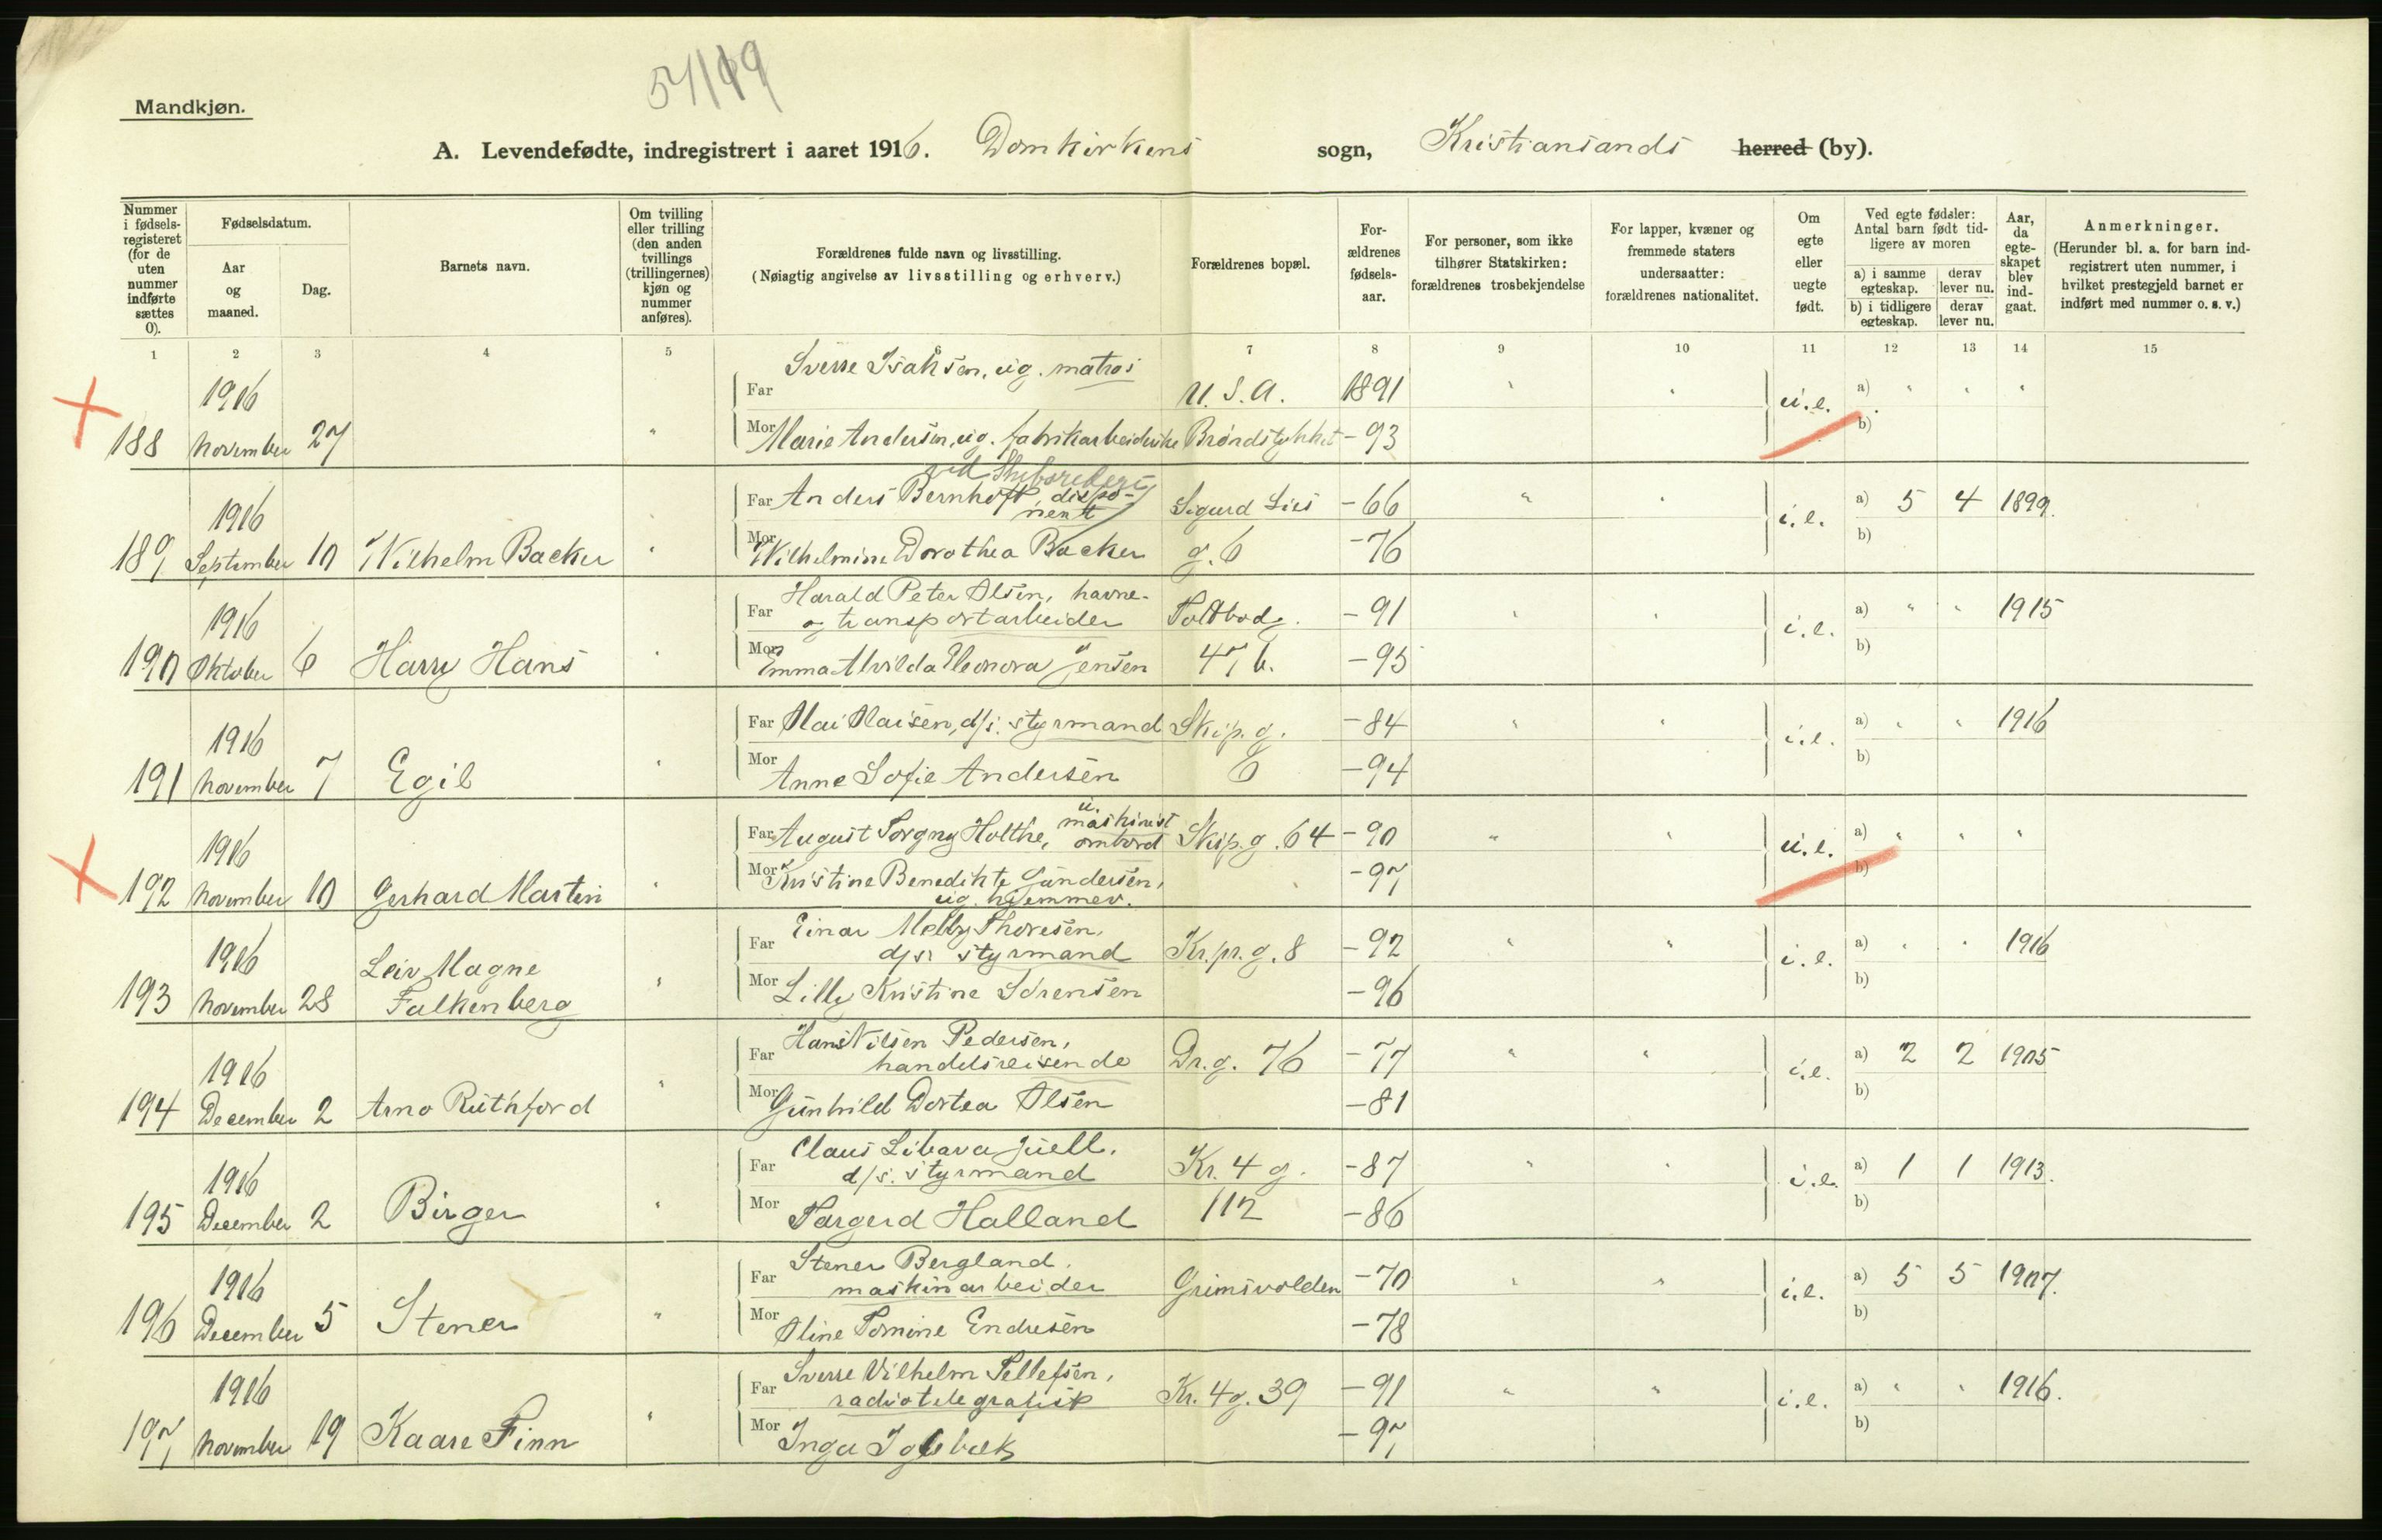 54/199
Mandkjøn.
A. Levendefødte, indregistrert i aaret 1916. Domkirkens sogn, Kristiansands herred (by).
Nummer i fødsels-registeret (for de uten nummer indførte sættes 0).
Fødselsdatum.
Aar og maaned.
Dag.
Barnets navn.
Om tvilling eller trilling (den anden tvillings (trillingernes) kjøn og nummer anføres).
Forældrenes fulde navn og livsstilling.
(Nøiagtig angivelse av livsstilling og erhverv.)
Forældrenes bopæl.
For-ældrenes fødsels-aar.
For personer, som ikke tilhører Statskirken: forældrenes trosbekjendelse
For lapper, kvæner og fremmede staters undersaatter: forældrenes nationalitet.
Om egte eller uegte født.
Ved egte fødsler: Antal barn født tid-ligere av moren
a) i samme egteskap.
derav lever nu.
b) i tidligere egteskap.
derav lever nu.
Aar, da egte-skapet blev ind-gaat.
Anmerkninger.
(Herunder bl. a. for barn ind-registrert uten nummer, i hvilket prestegjeld barnet er indført med nummer o. s. v.)
1 2 3 4 5 6 7 8 9 10 11 12 13 14 15
Sverre Isaksen, ug. matros
1916 Far U.S.A. 1891 " " u.e. a) " " "
188 November 27 " Mor Marie Andersen, ug. fabrikarbeiderske Brøndstykket -93 b)
Far Anders Bernhoft, dispo-
nent
1916 Sigurd Liës -66 " " i.e. a) 5 4 1899.
189 September 10 Wilhelm Backer " Mor Wilhelmine Dorothea Backer g. 6 -76 b)
Harald Peter Olsen, havne-
1916 Far og transportarbeider Toldbodg. -91 " " i.e. a) " " 1915
190 Oktober 6 Harry Hans " Mor Emma Alvilda Eleonora Jensen 47 b. -95 b)
1916 Far Olai Olaisen, d/s. styrmand Skip. g. -84 " " i.e. a) " " 1916
191 November 7 Egil " Mor Anne Sofie Andersen 6 -94 b)
u. maskinist
1916 Far August Torgny Holthe, ombord Skip. g. 64 -90 " " u.e. a) " " "
192 November 10 Gerhard Martin " Mor Kristine Benedikte Gundersen, -97 b)
ug. hjemmev.
Einar Melby Thoresen,
1916 Far d/s. styrmand Kr. pr. g. 8 -92 " " i.e. a) " " 1916
Leiv Magne
193 November 28 Falkenberg " Mor Lilly Kristine Sørensen -96 b)
Hans Nilsen Pedersen,
1916 Far handelsreisende Dr. g. 76 -77 " " i.e. a) 2 2 1905
194 December 2 Arno Ruthford " Mor Gunhild Dortea Olsen -81 b)
Claus Libava Juell.
1916 Far d/s. styrmand Kr. 4 g. -87 " " i.e. a) 1 1 1913.
195 December 2 Birger " Mor Torgerd Halland 112 -86 b)
Stener Bergland,
1916 Far maskinarbeider Grimsvolden -70 " " i.e. a) 5 5 1907.
196 December 5 Stener " Mor Oline Tomine Endresen -78 b)
Sverre Vilhelm Tellefsen,
1916 Far radiotelegrafist Kr. 4 g. 39 -91 " " i.e. a) " " 1916.
197 November 19 Kaare Finn " Mor Inga Iglebæk -97 b)